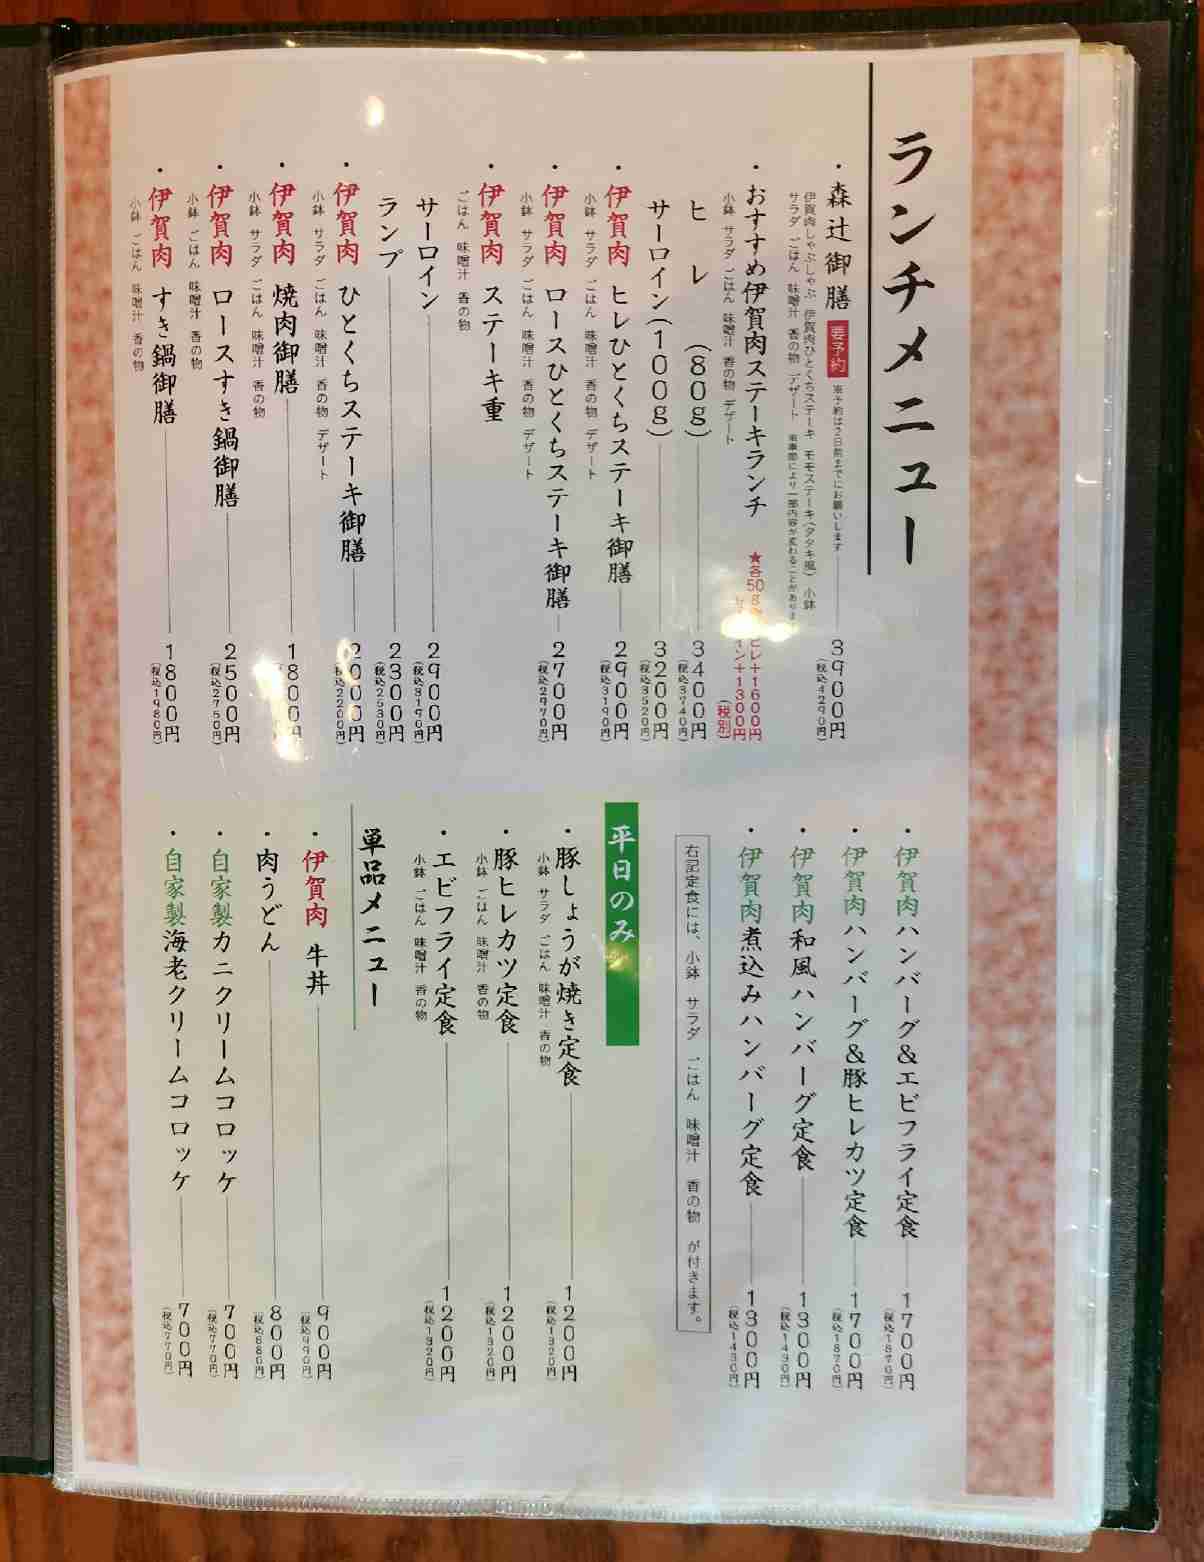 ランチメニュー
・森辻御膳 要予約 ※予約は2日前までにお願いします 3900円
(税込4290円)
伊賀肉しゃぶしゃぶ 伊賀肉ひとくちステーキ モモステーキ(タタキ風) 小鉢
サラダ ごはん 味噌汁 香の物 デザート ※季節により一部内容が変わることがあります
・おすすめ伊賀肉ステーキランチ
★各50g ヒレ+1600円
イン+1300円
(税別)
小鉢 サラダ ごはん 味噌汁 香の物 デザート
ヒレ(80g) 3400円
(税込3740円)
サーロイン(100g) 3200円
(税込3520円)
・伊賀肉 ヒレひとくちステーキ御膳 2900円
(税込3190円)
小鉢 サラダ ごはん 味噌汁 香の物 デザート
・伊賀肉 ロースひとくちステーキ御膳 2700円
(税込2970円)
小鉢 サラダ ごはん 味噌汁 香の物 デザート
・伊賀肉 ステーキ重
ごはん 味噌汁 香の物
サーロイン 2900円
(税込3190円)
ランプ 2300円
(税込2530円)
・伊賀肉 ひとくちステーキ御膳 2000円
(税込2200円)
小鉢 サラダ ごはん 味噌汁 香の物 デザート
・伊賀肉 焼肉御膳 1800円
小鉢 サラダ ごはん 味噌汁 香の物
・伊賀肉 ロースすき鍋御膳 2500円
(税込2750円)
小鉢 ごはん 味噌汁 香の物
・伊賀肉 すき鍋御膳 1800円
(税込1980円)
小鉢 ごはん 味噌汁 香の物
・伊賀肉ハンバーグ&エビフライ定食 1700円
(税込1870円)
・伊賀肉ハンバーグ&豚ヒレカツ定食 1700円
(税込1870円)
・伊賀肉和風ハンバーグ定食 1300円
(税込1430円)
・伊賀肉煮込みハンバーグ定食 1300円
(税込1430円)
右記定食には、小鉢 サラダ ごはん 味噌汁 香の物 が付きます。
平日のみ
・豚しょうが焼き定食 1200円
(税込1320円)
小鉢 サラダ ごはん 味噌汁 香の物
・豚ヒレカツ定食 1200円
(税込1320円)
小鉢 ごはん 味噌汁 香の物
・エビフライ定食 1200円
(税込1320円)
小鉢 ごはん 味噌汁 香の物
単品メニュー
・伊賀肉 牛丼 900円
(税込990円)
・肉うどん 800円
(税込880円)
・自家製カニクリームコロッケ 700円
(税込770円)
・自家製海老クリームコロッケ 700円
(税込770円)